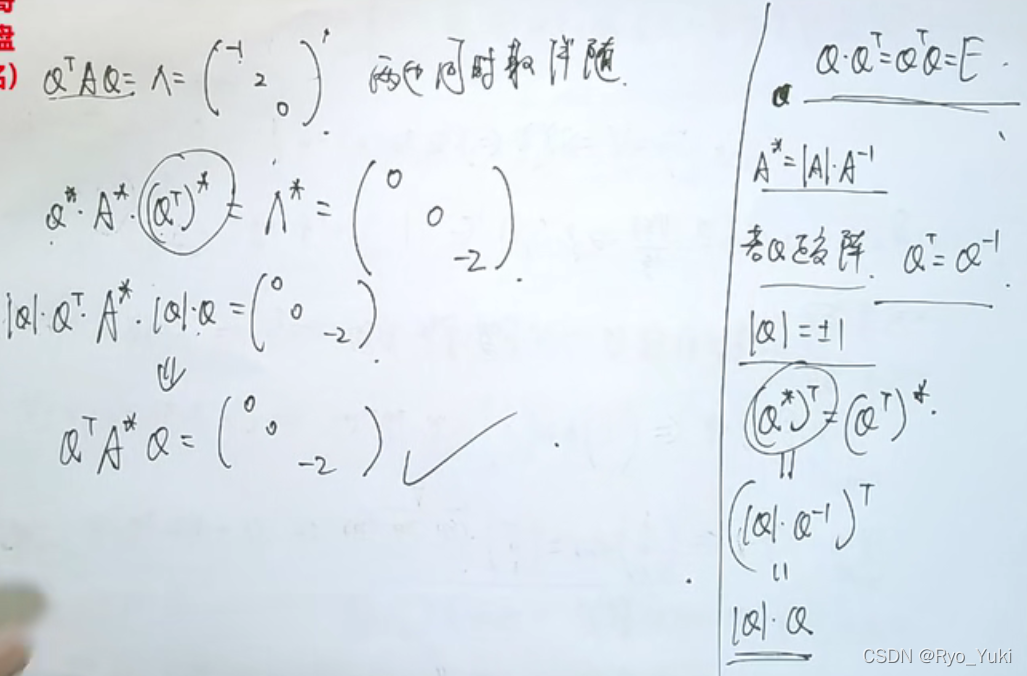 盘
名)
Q^T A Q = Λ = ( -1 2 0 ) 两边同时取伴随.
Q^*· A^*·(Q^T)^* = Λ^* = ( 0 0 -2 ).
|Q|·Q^T·A^*·|Q|·Q = ( 0 0 -2 ).
⇓
Q^T A^* Q = ( 0 0 -2 ) ✓
Q·Q^T=Q^T Q=E.
A^*=|A|·A^-1
若Q正交阵. Q^T=Q^-1.
|Q|=±1
(Q^*)^T=(Q^T)^*.
||
(|Q|·Q^-1)^T
||
|Q|·Q
CSDN @Ryo_Yuki